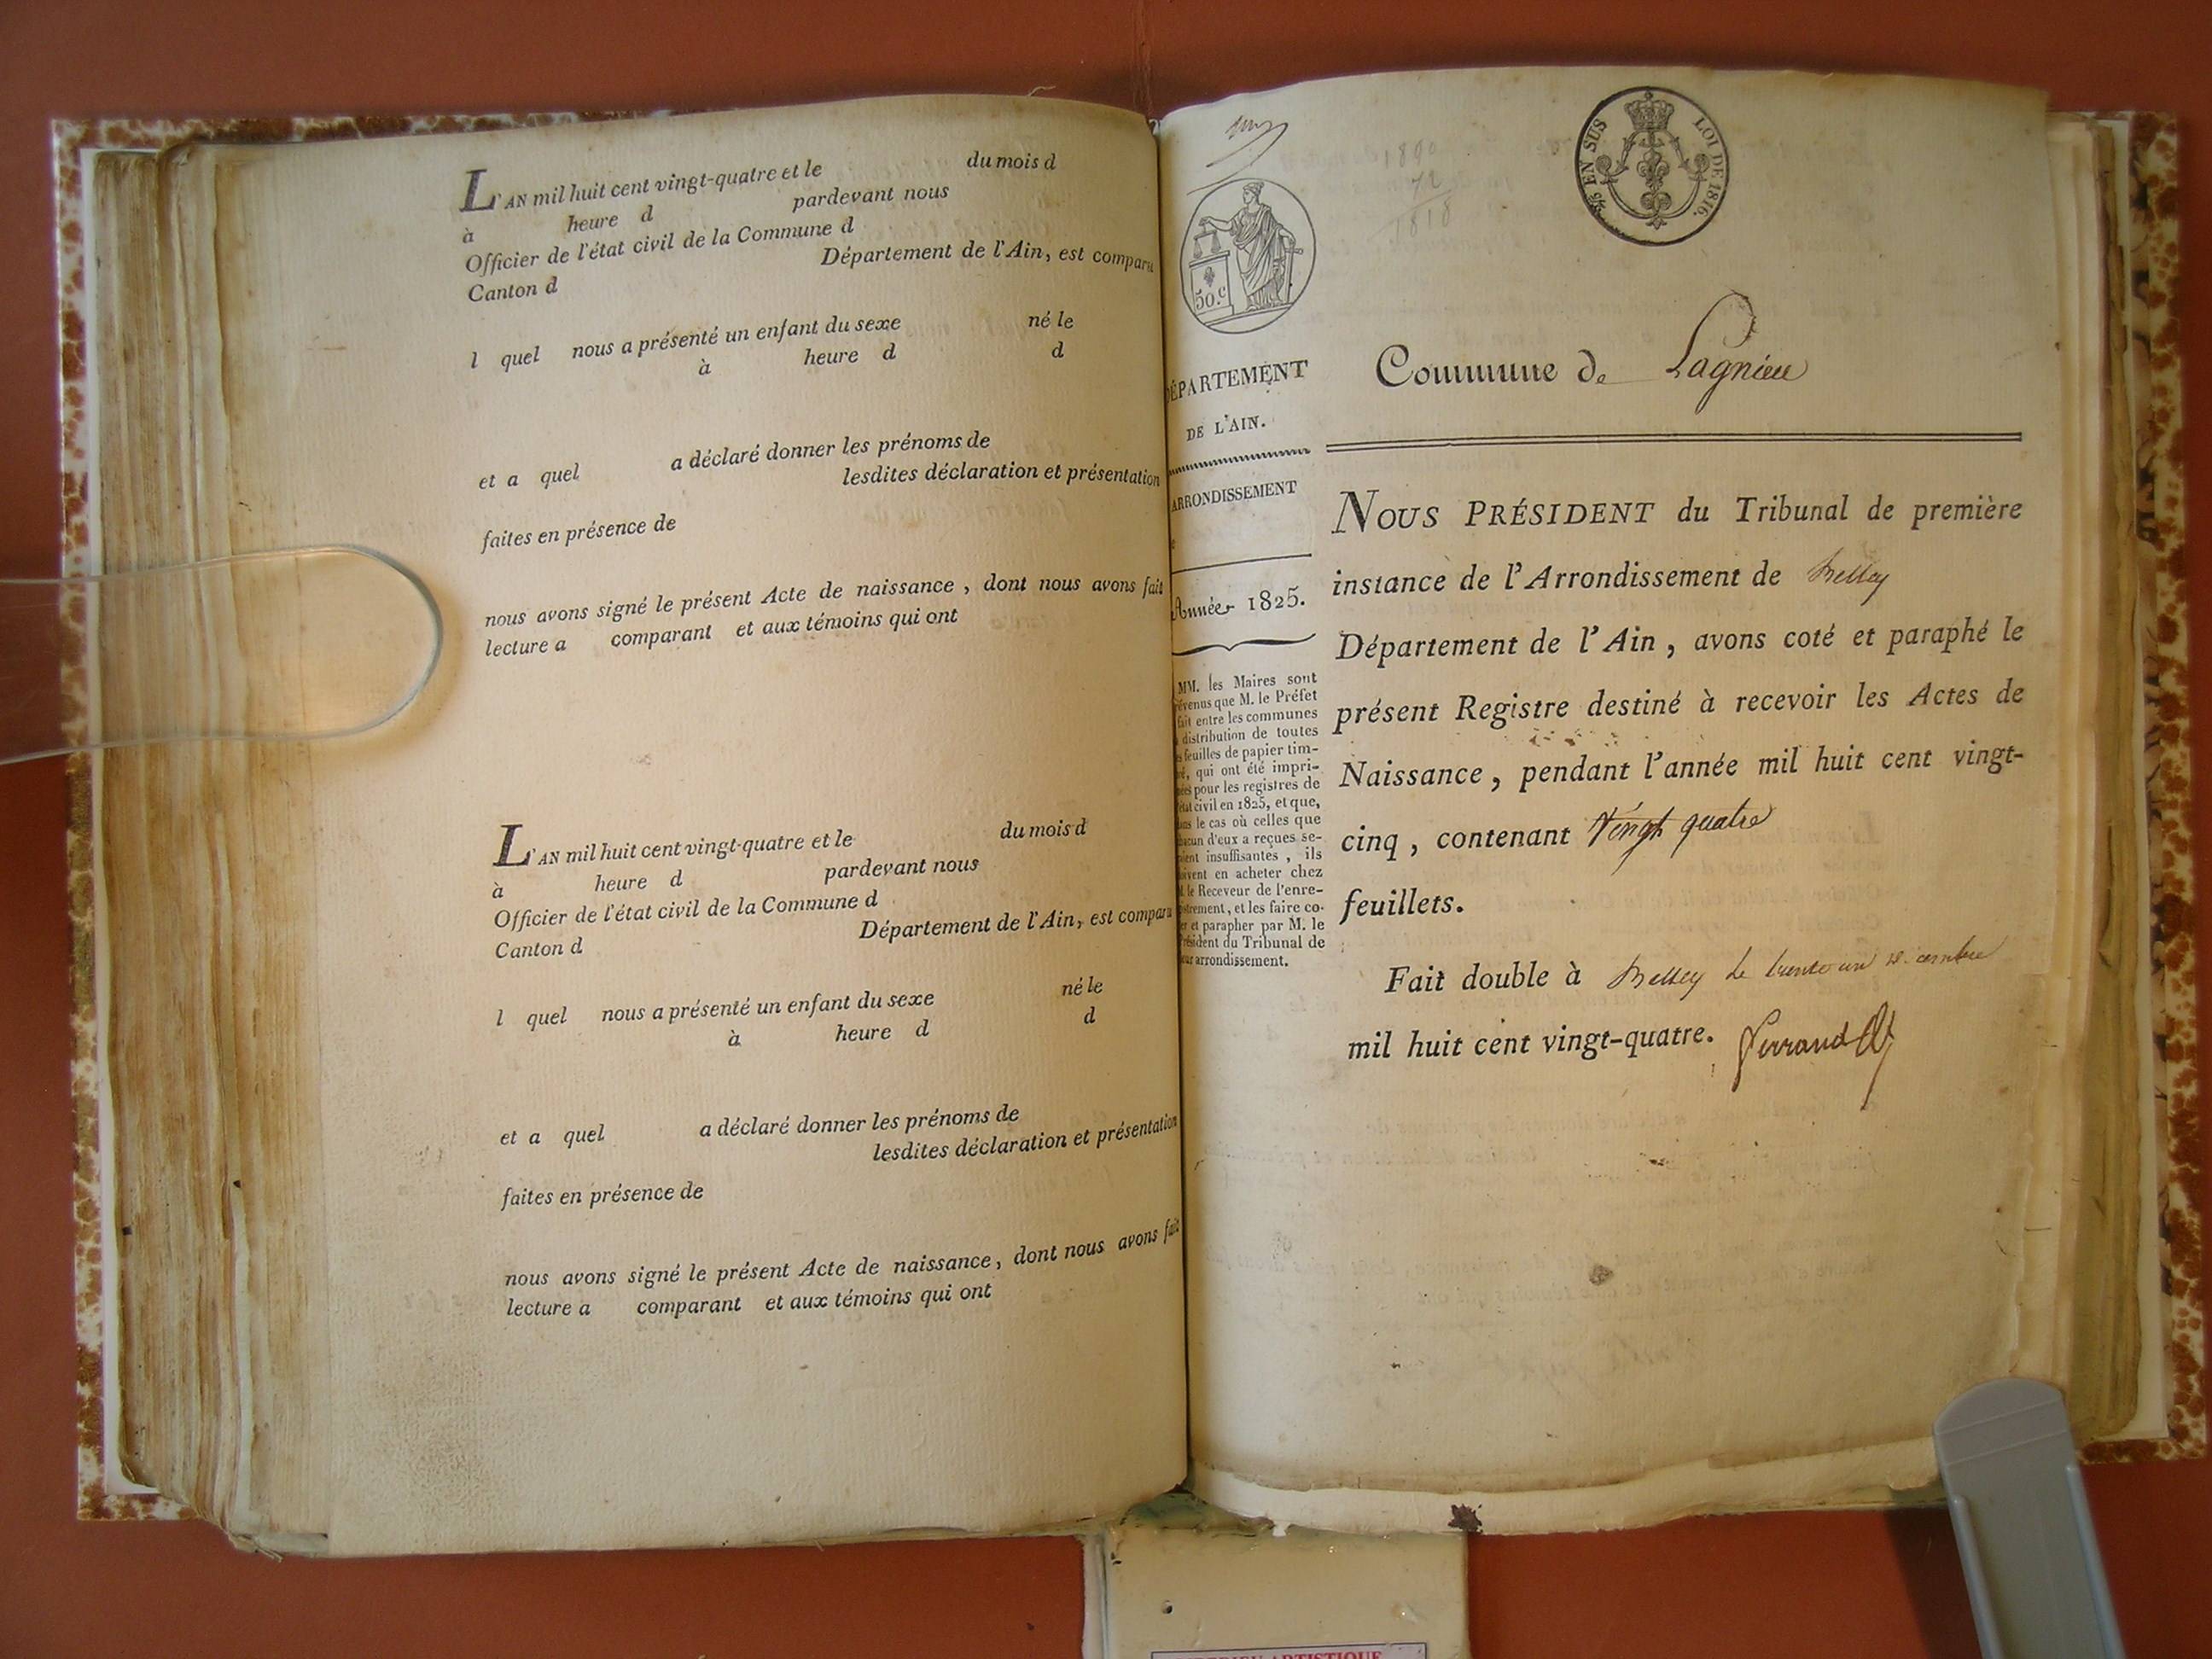 L'AN mil huit cent vingt-quatre et le du mois d
à heure d pardevant nous
Officier de l'état civil de la Commune d
Canton d Département de l'Ain, est comparu
l quel nous a présenté un enfant du sexe né le
à heure d d
et a quel a déclaré donner les prénoms de
lesdites déclaration et présentation
faites en présence de
nous avons signé le présent Acte de naissance, dont nous avons fait
lecture a comparant et aux témoins qui ont
L'AN mil huit cent vingt-quatre et le du mois d
à heure d pardevant nous
Officier de l'état civil de la Commune d
Canton d Département de l'Ain, est comparu
l quel nous a présenté un enfant du sexe né le
à heure d d
et a quel a déclaré donner les prénoms de
lesdites déclaration et présentation
faites en présence de
nous avons signé le présent Acte de naissance, dont nous avons fait
lecture a comparant et aux témoins qui ont
EN SUS LOI DE 1816.
1890
72
1818
50.c
DÉPARTEMENT
DE L'AIN.
ARRONDISSEMENT
Année 1825.
MM. les Maires sont
prévenus que M. le Préfet
fait entre les communes
la distribution de toutes
les feuilles de papier tim-
bré, qui ont été impri-
mées pour les registres de
l'état civil en 1825, et que,
dans le cas où celles que
chacun d'eux a reçues se-
raient insuffisantes, ils
doivent en acheter chez
M. le Receveur de l'enre-
gistrement, et les faire co-
ter et parapher par M. le
Président du Tribunal de
leur arrondissement.
Commune de Lagnieu
NOUS PRÉSIDENT du Tribunal de première
instance de l'Arrondissement de Belley
Département de l'Ain, avons coté et paraphé le
présent Registre destiné à recevoir les Actes de
Naissance, pendant l'année mil huit cent vingt-
cinq, contenant Vingt quatre
feuillets.
Fait double à Belley le trente un décembre
mil huit cent vingt-quatre.